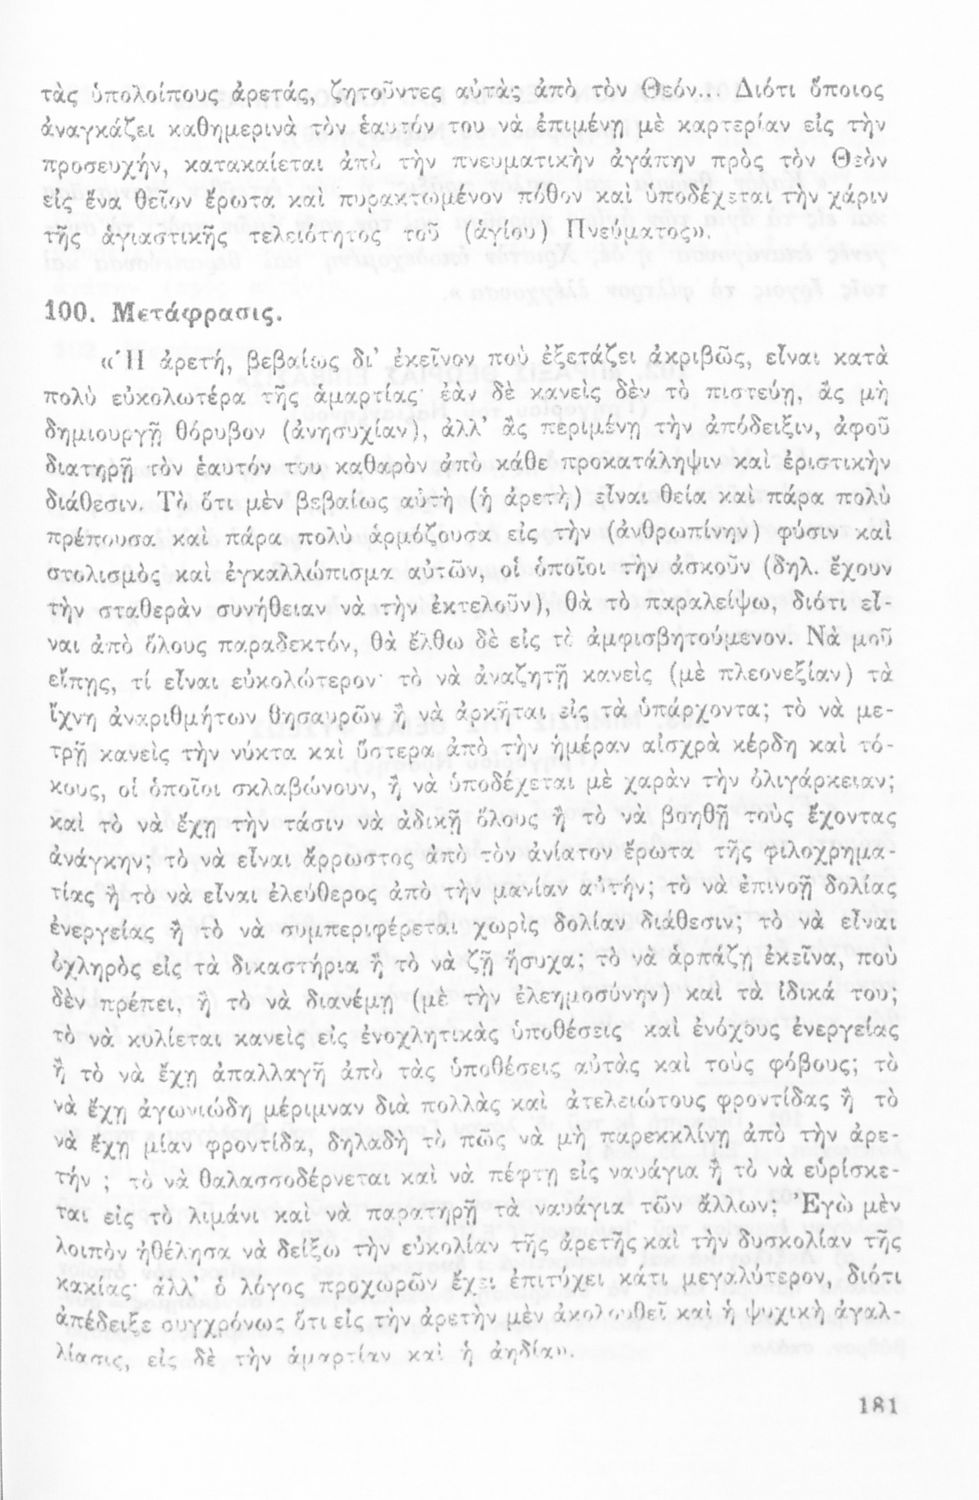 τὰς ὑπολοίπους ἀρετάς, ζητοῦντες αὐτὰς ἀπὸ τὸν Θεόν... Διότι ὅποιος
ἀναγκάζει καθημερινὰ τὸν ἑαυτόν του νὰ ἐπιμένῃ μὲ καρτερίαν εἰς τὴν
προσευχήν, κατακαίεται ἀπὸ τὴν πνευματικὴν ἀγάπην πρὸς τὸν Θεὸν
εἰς ἕνα θεῖον ἔρωτα καὶ πυρακτωμένον πόθον καὶ ὑποδέχεται τὴν χάριν
τῆς ἁγιαστικῆς τελειότητος τοῦ (ἁγίου) Πνεύματος».
100. Μετάφρασις.
«Ἡ ἀρετή, βεβαίως δι' ἐκεῖνον ποὺ ἐξετάζει ἀκριβῶς, εἶναι κατὰ
πολὺ εὐκολωτέρα τῆς ἁμαρτίας· ἐὰν δὲ κανεὶς δὲν τὸ πιστεύῃ, ἂς μὴ
δημιουργῇ θόρυβον (ἀνησυχίαν), ἀλλ' ἂς περιμένῃ τὴν ἀπόδειξιν, ἀφοῦ
διατηρῇ τὸν ἑαυτόν του καθαρὸν ἀπὸ κάθε προκατάληψιν καὶ ἐριστικὴν
διάθεσιν. Τὸ ὅτι μὲν βεβαίως αὐτὴ (ἡ ἀρετή) εἶναι θεία καὶ πάρα πολὺ
πρέπουσα καὶ πάρα πολὺ ἁρμόζουσα εἰς τὴν (ἀνθρωπίνην) φύσιν καὶ
στολισμὸς καὶ ἐγκαλλώπισμα αὐτῶν, οἱ ὁποῖοι τὴν ἀσκοῦν (δηλ. ἔχουν
τὴν σταθερὰν συνήθειαν νὰ τὴν ἐκτελοῦν), θὰ τὸ παραλείψω, διότι εἶ-
ναι ἀπὸ ὅλους παραδεκτόν, θὰ ἔλθω δὲ εἰς τὸ ἀμφισβητούμενον. Νὰ μοῦ
εἴπῃς, τί εἶναι εὐκολώτερον· τὸ νὰ ἀναζητῇ κανεὶς (μὲ πλεονεξίαν) τὰ
ἴχνη ἀναριθμήτων θησαυρῶν ἢ νὰ ἀρκῆται εἰς τὰ ὑπάρχοντα; τὸ νὰ με-
τρῇ κανεὶς τὴν νύκτα καὶ ὕστερα ἀπὸ τὴν ἡμέραν αἰσχρὰ κέρδη καὶ τό-
κους, οἱ ὁποῖοι σκλαβώνουν, ἢ νὰ ὑποδέχεται μὲ χαρὰν τὴν ὀλιγάρκειαν;
καὶ τὸ νὰ ἔχῃ τὴν τάσιν νὰ ἀδικῇ ὅλους ἢ τὸ νὰ βοηθῇ τοὺς ἔχοντας
ἀνάγκην; τὸ νὰ εἶναι ἄρρωστος ἀπὸ τὸν ἀνίατον ἔρωτα τῆς φιλοχρημα-
τίας ἢ τὸ νὰ εἶναι ἐλεύθερος ἀπὸ τὴν μανίαν αὐτήν; τὸ νὰ ἐπινοῇ δολίας
ἐνεργείας ἢ τὸ νὰ συμπεριφέρεται χωρὶς δολίαν διάθεσιν; τὸ νὰ εἶναι
ὀχληρὸς εἰς τὰ δικαστήρια ἢ τὸ νὰ ζῇ ἥσυχα; τὸ νὰ ἁρπάζῃ ἐκεῖνα, ποὺ
δὲν πρέπει, ἢ τὸ νὰ διανέμῃ (μὲ τὴν ἐλεημοσύνην) καὶ τὰ ἰδικά του;
τὸ νὰ κυλίεται κανεὶς εἰς ἐνοχλητικὰς ὑποθέσεις καὶ ἐνόχους ἐνεργείας
ἢ τὸ νὰ ἔχῃ ἀπαλλαγῆ ἀπὸ τὰς ὑποθέσεις αὐτὰς καὶ τοὺς φόβους; τὸ
νὰ ἔχῃ ἀγωνιώδη μέριμναν διὰ πολλὰς καὶ ἀτελειώτους φροντίδας ἢ τὸ
νὰ ἔχῃ μίαν φροντίδα, δηλαδὴ τὸ πῶς νὰ μὴ παρεκκλίνῃ ἀπὸ τὴν ἀρε-
τήν ; τὸ νὰ θαλασσοδέρνεται καὶ νὰ πέφτῃ εἰς ναυάγια ἢ τὸ νὰ εὑρίσκε-
ται εἰς τὸ λιμάνι καὶ νὰ παρατηρῇ τὰ ναυάγια τῶν ἄλλων; Ἐγὼ μὲν
λοιπὸν ἠθέλησα νὰ δείξω τὴν εὐκολίαν τῆς ἀρετῆς καὶ τὴν δυσκολίαν τῆς
κακίας· ἀλλ' ὁ λόγος προχωρῶν ἔχει ἐπιτύχει κάτι μεγαλύτερον, διότι
ἀπέδειξε συγχρόνως ὅτι εἰς τὴν ἀρετὴν μὲν ἀκολουθεῖ καὶ ἡ ψυχικὴ ἀγαλ-
λίασις, εἰς δὲ τὴν ἁμαρτίαν καὶ ἡ ἀηδία».
181